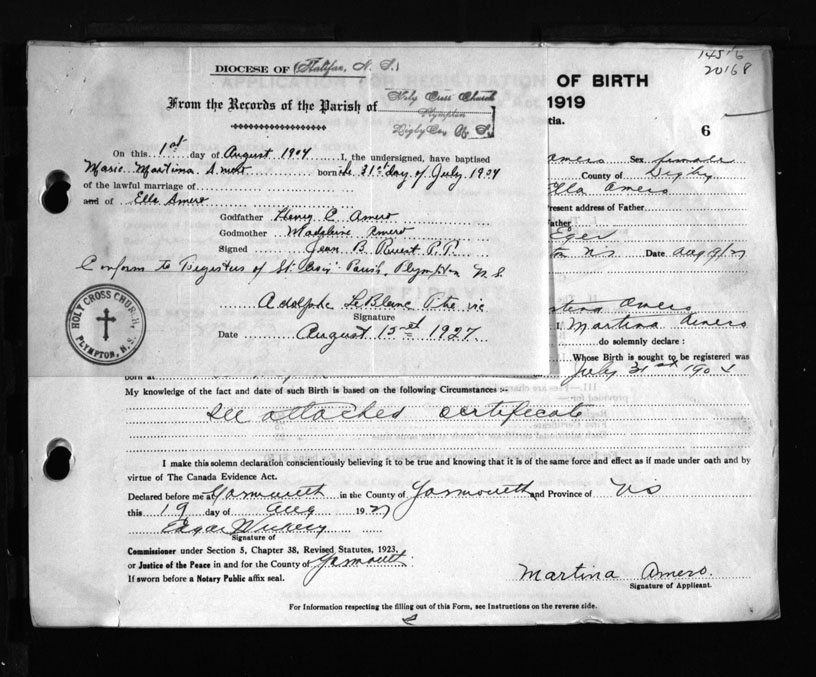 14516
20168
DIOCESE OF (Halifax, N. S.)
From the Records of the Parish of Holy Cross Church
Plympton
Digby Co., N. S.
On this 1st day of August 1904 I, the undersigned, have baptised
Marie Martina Amero born the 31st day of July 1904
of the lawful marriage of
and of Ella Amero
Godfather Henry C Amero
Godmother Madeleine Amero
Signed Jean B. P.P.
Conform to Registers of St. Parish, Plympton N S.
Adolphe LeBlanc
Signature
Date August 15st 1927
HOLY CROSS CHURCH,
PLYMPTON, N.S.
OF BIRTH
1919
tia.
6
Amero Sex female
County of Digby
Ella Amero
Present address of Father
Father
N S Date Aug 9/27
Amero
I, Martina Amero
do solemnly declare :
Whose Birth is sought to be registered was
born at July 31st 190
My knowledge of the fact and date of such Birth is based on the following Circumstances :-
See attached certificate
I make this solemn declaration conscientiously believing it to be true and knowing that it is of the same force and effect as if made under oath and by
virtue of The Canada Evidence Act.
Declared before me at Yarmouth in the County of Yarmouth and Province of NS
this 19 day of Aug 1927
Edgar
Signature of
Commissioner under Section 5, Chapter 38, Revised Statutes, 1923.
or Justice of the Peace in and for the County of Yarmouth
If sworn before a Notary Public affix seal.
Martina Amero.
Signature of Applicant.
For Information respecting the filling out of this Form, see Instructions on the reverse side.